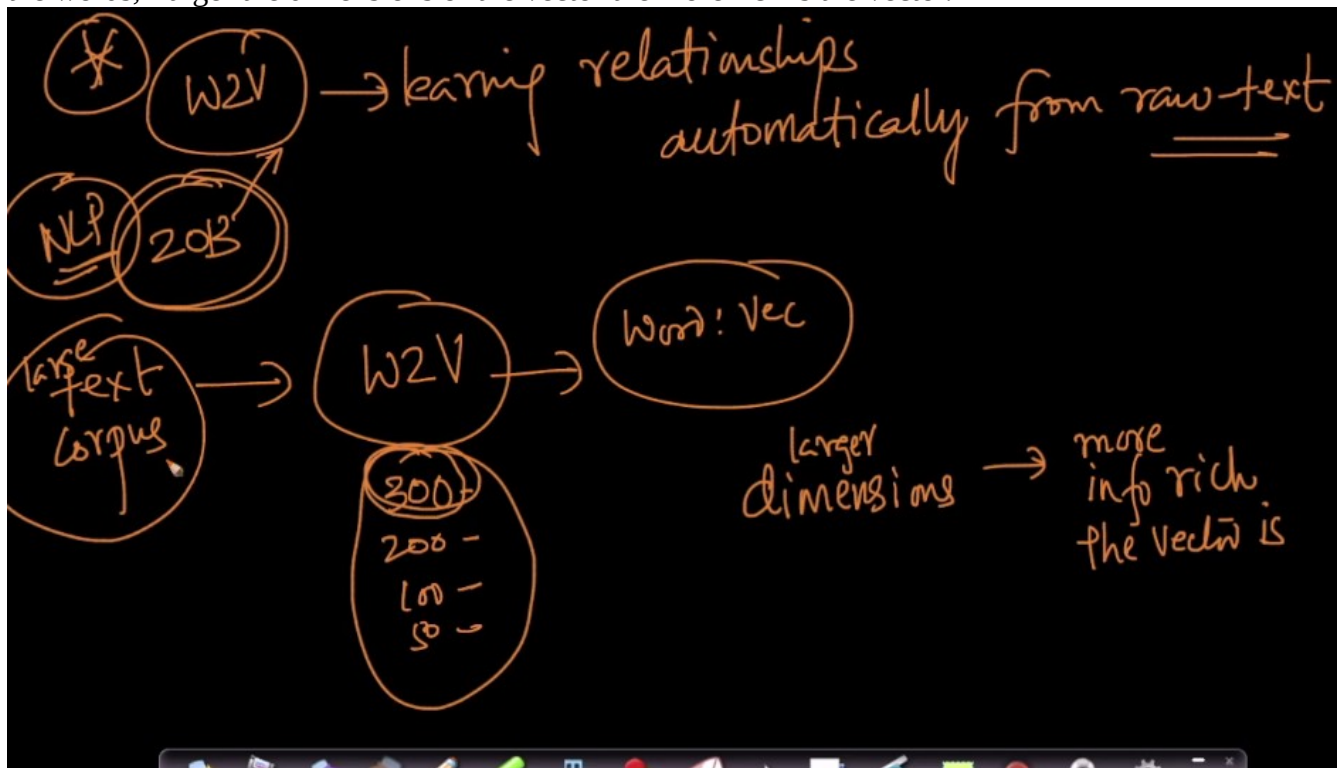 W2V → learning relationships
automatically from raw text
NLP 2013
large
text
corpus
→ W2V → Word: Vec
300 -
200 -
100 -
50 -
larger
dimensions → more
info rich
the vector is